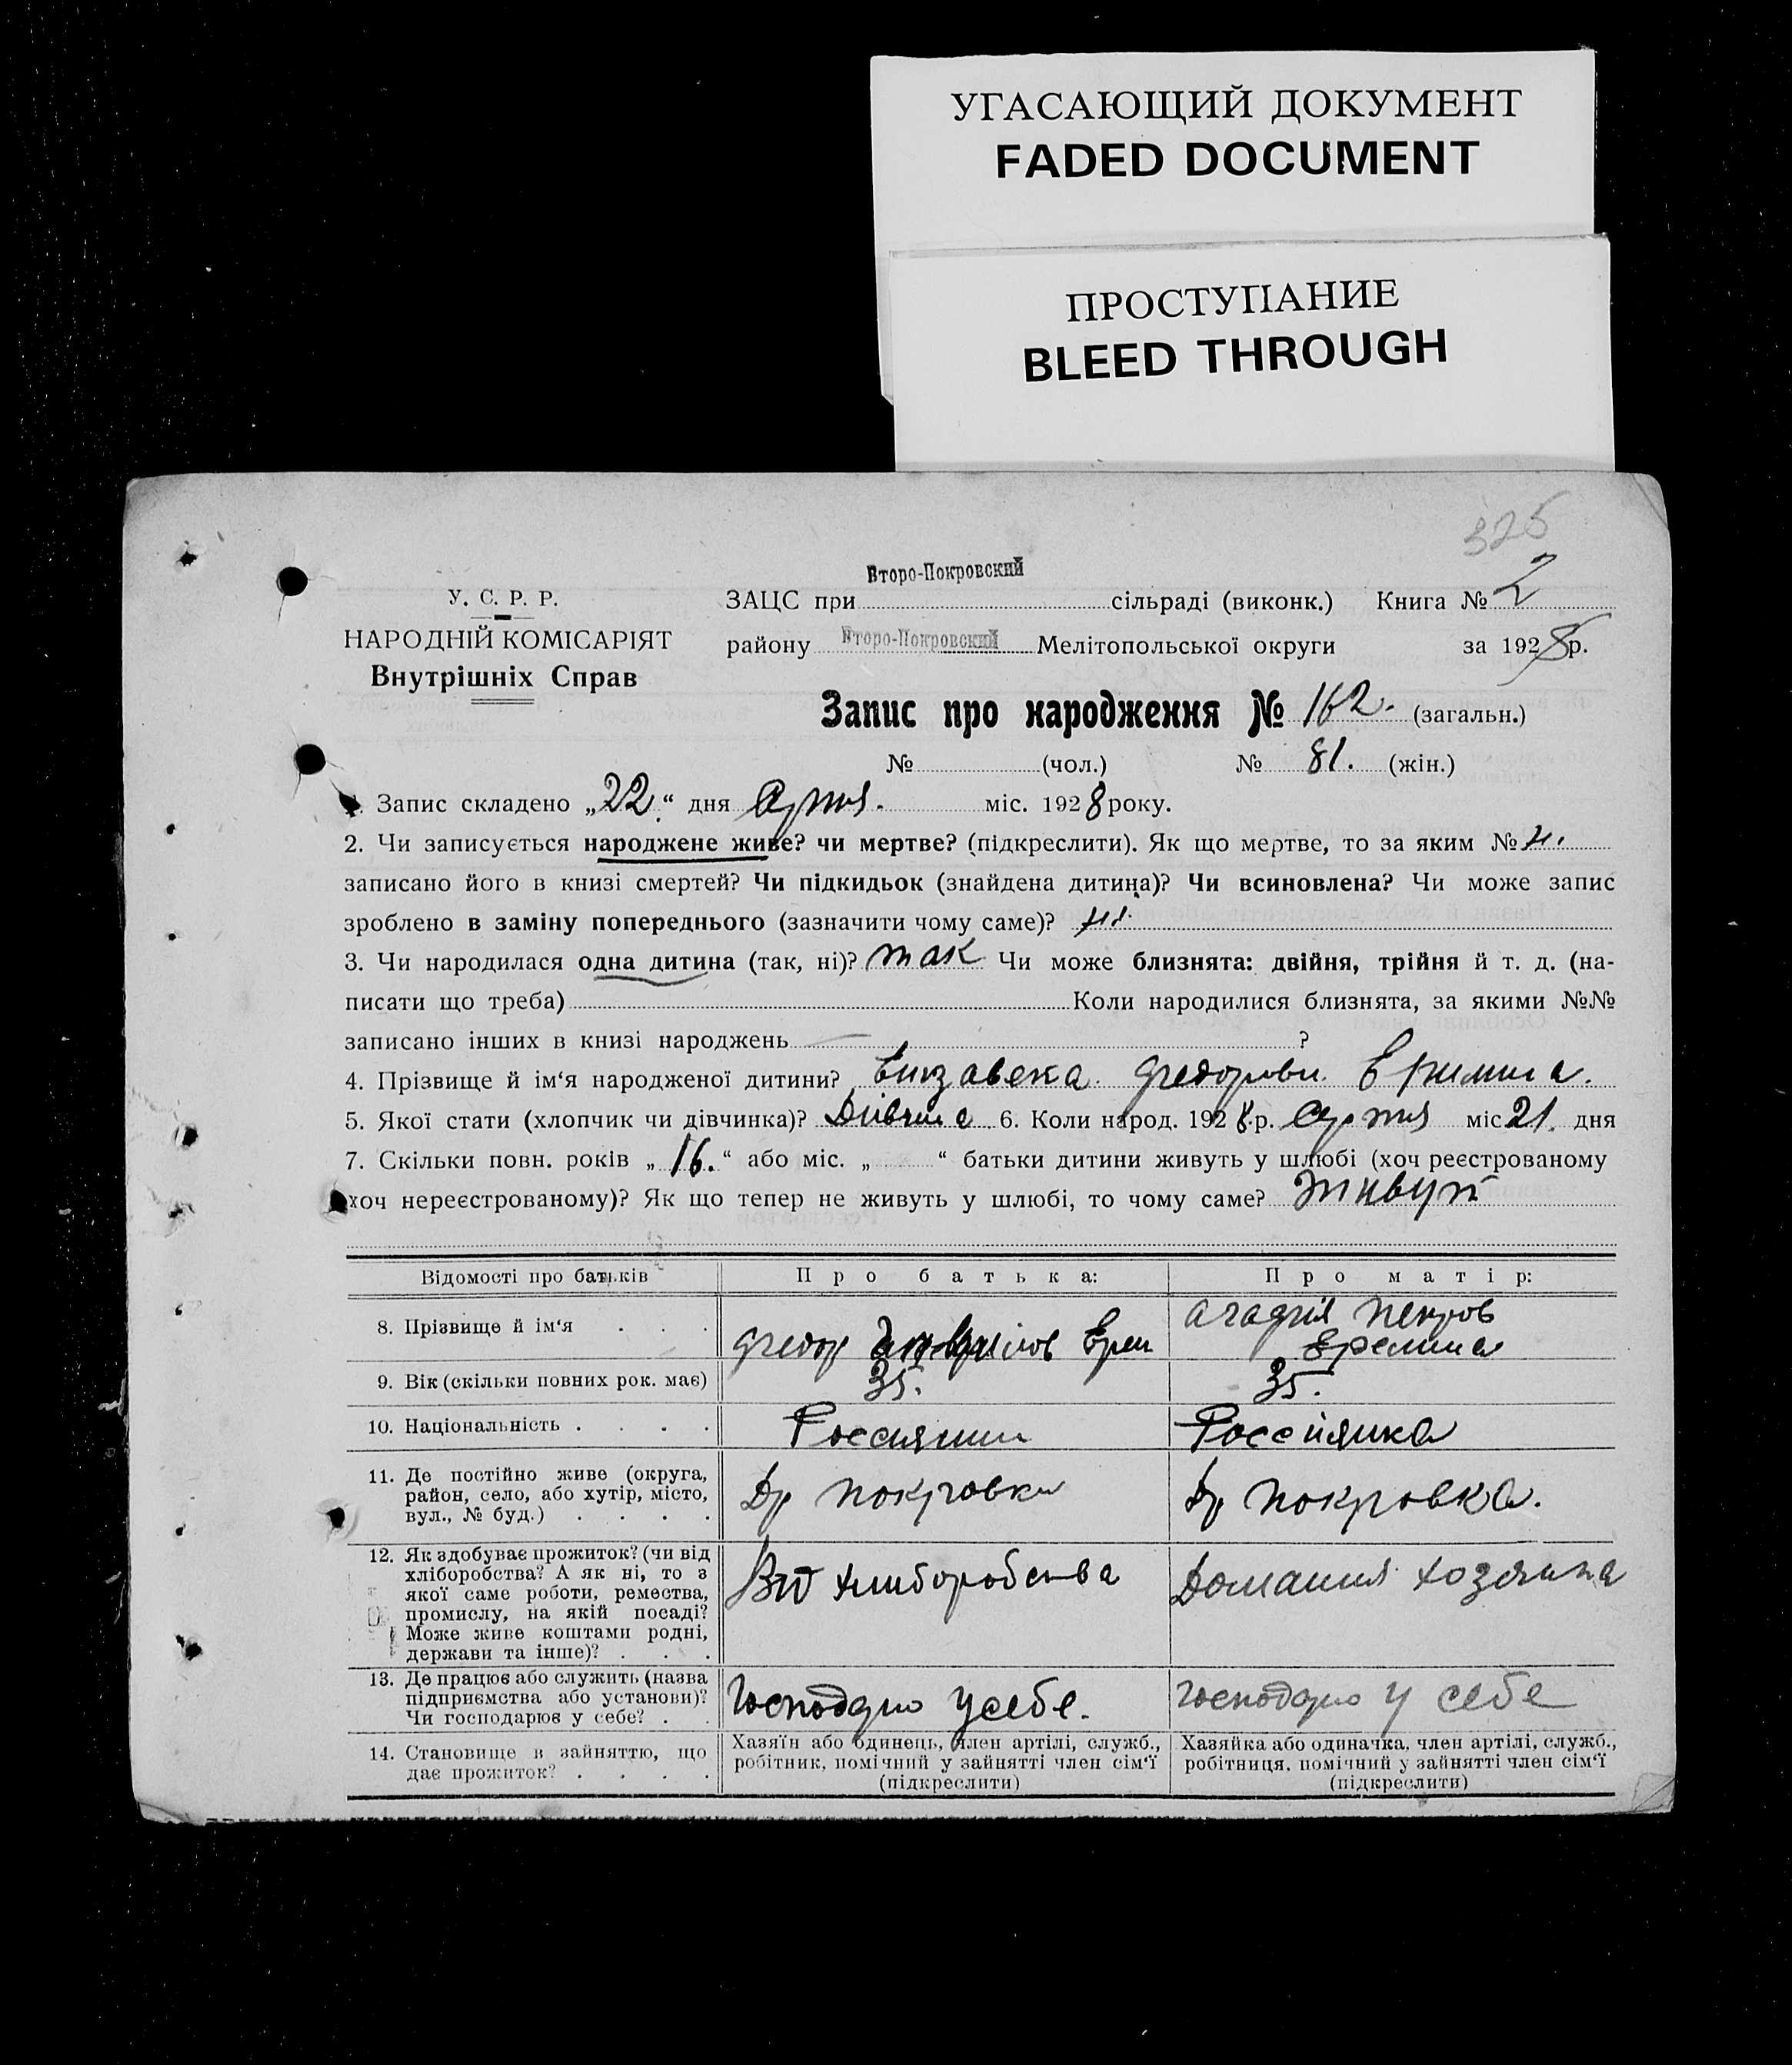 УГАСАЮЩИЙ ДОКУМЕНТ
FADED DOCUMENT
ПРОСТУПАНИЕ
BLEED THROUGH
325
У. С. Р. Р.
НАРОДНІЙ КОМІСАРІЯТ
Внутрішніх Справ
Второ-Покровский
ЗАЦС при сільраді (виконк.) Книга № 2
району Второ-Покровский Мелітопольської округи за 1928 р.
Запис про народження № 162. (загальн.)
№ (чол.) № 81. (жін.)
1. Запис складено „22“ дня серпня. міс. 1928 року.
2. Чи записується народжене живе? чи мертве? (підкреслити). Як що мертве, то за яким №
записано його в книзі смертей? Чи підкидьок (знайдена дитина)? Чи всиновлена? Чи може запис
зроблено в заміну попереднього (зазначити чому саме)?
3. Чи народилася одна дитина (так, ні)? так Чи може близнята: двійня, трійня й т. д. (на-
писати що треба) Коли народилися близнята, за якими №№
записано інших в книзі народжень ?
4. Прізвище й ім‘я народженої дитини? Федорови
5. Якої стати (хлопчик чи дівчинка)? Дівчина 6. Коли народ. 1928 р. серпня міс 21. дня
7. Скільки повн. років „16.“ або міс. „ “ батьки дитини живуть у шлюбі (хоч реєстрованому
хоч нереєстрованому)? Як що тепер не живуть у шлюбі, то чому саме? живуть
Відомості про батьків
Про батька:
Про матір:
8. Прізвище й ім‘я . . .
Федор Ерем
Агафія Петров
Еремина
9. Вік (скільки повних рок. має)
35.
35.
10. Національність . . . .
Россиянин
Россиянка
11. Де постійно живе (округа,
район, село, або хутір, місто,
вул., № буд.) . . . .
Др Покровка
Др Покровка.
12. Як здобуває прожиток? (чи від
хліборобства? А як ні, то з
якої саме роботи, ремества,
промислу, на якій посаді?
Може живе коштами родні,
держави та інше)? . . .
Від хлиборобства
Домашня хозяйка
13. Де працює або служить (назва
підприємства або установи)?
Чи господарює у себе? . .
Господарю у себе.
Господарю у себе
14. Становище в зайняттю, що
дає прожиток? . . . .
Хазяїн або одинець, член артілі, служб.,
робітник, помічний у зайнятті член сім‘ї
(підкреслити)
Хазяйка або одиначка, член артілі, служб.,
робітниця, помічний у зайнятті член сім‘ї
(підкреслити)